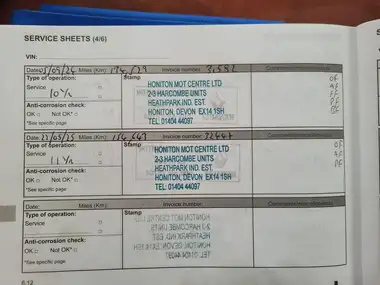 SERVICE SHEETS (4/6)
VIN:
Date: Miles (Km): Invoice number: Comments/signature
Type of operation: Stamp OF
Service HONITON MOT CENTRE LTD
10 Yr 2-3 HARCOMBE UNITS
HEATHPARK IND. EST.
Anti-corrosion check: HONITON, DEVON EX14 1SH
OK □ Not OK* □ TEL: 01404 44097
*See specific page
Date: Miles (Km): Invoice number: Comments/signature
Type of operation: Stamp OF
Service HONITON MOT CENTRE LTD
11 Yr 2-3 HARCOMBE UNITS
HEATHPARK IND. EST.
Anti-corrosion check: HONITON, DEVON EX14 1SH
OK □ Not OK* □ TEL: 01404 44097
*See specific page
Date: Miles (Km): Invoice number: Comments/signature
Type of operation: Stamp
Service HONITON MOT CENTRE LTD
2-3 HARCOMBE UNITS
HEATHPARK IND. EST.
Anti-corrosion check: HONITON, DEVON EX14 1SH
OK □ Not OK* □ TEL: 01404 44097
*See specific page
6.12